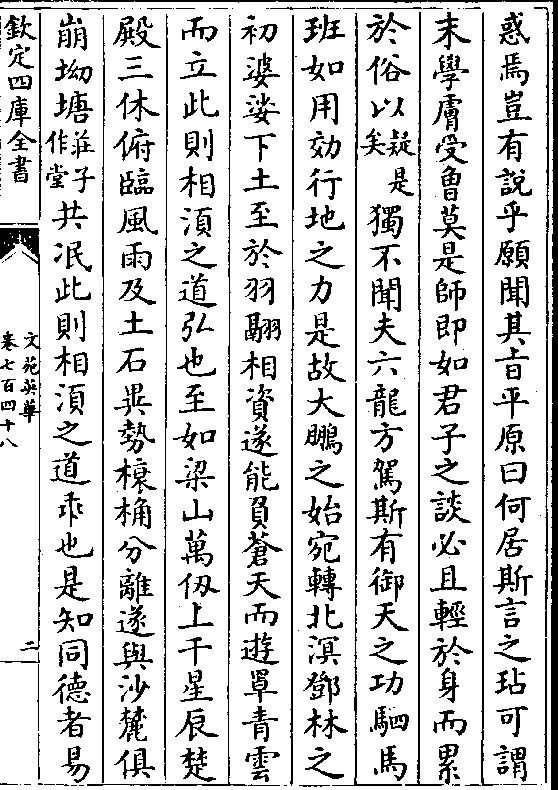 惑焉豈有説乎願聞其㫖平原曰何居斯言之玷可謂
末學膚受魯莫是師即如君子之談必且輕於身而累
於俗以疑是矣獨不聞夫六龍方駕斯有御天之功駟馬
班如用効行地之力是故大鵬之始宛轉北溟鄧林之
初婆娑下土至於羽翮相資遂能負蒼天而遊罩青雲
而立此則相湏之道弘也至如梁山萬仭上干星辰楚
殿三休俯臨風雨及土石異勢榱桷分離遂與沙麓俱
崩坳塘莊子作堂共泯此則相湏之道乖也是知同德者易
欽定四庫全書
文苑英華
卷七百四十八
二